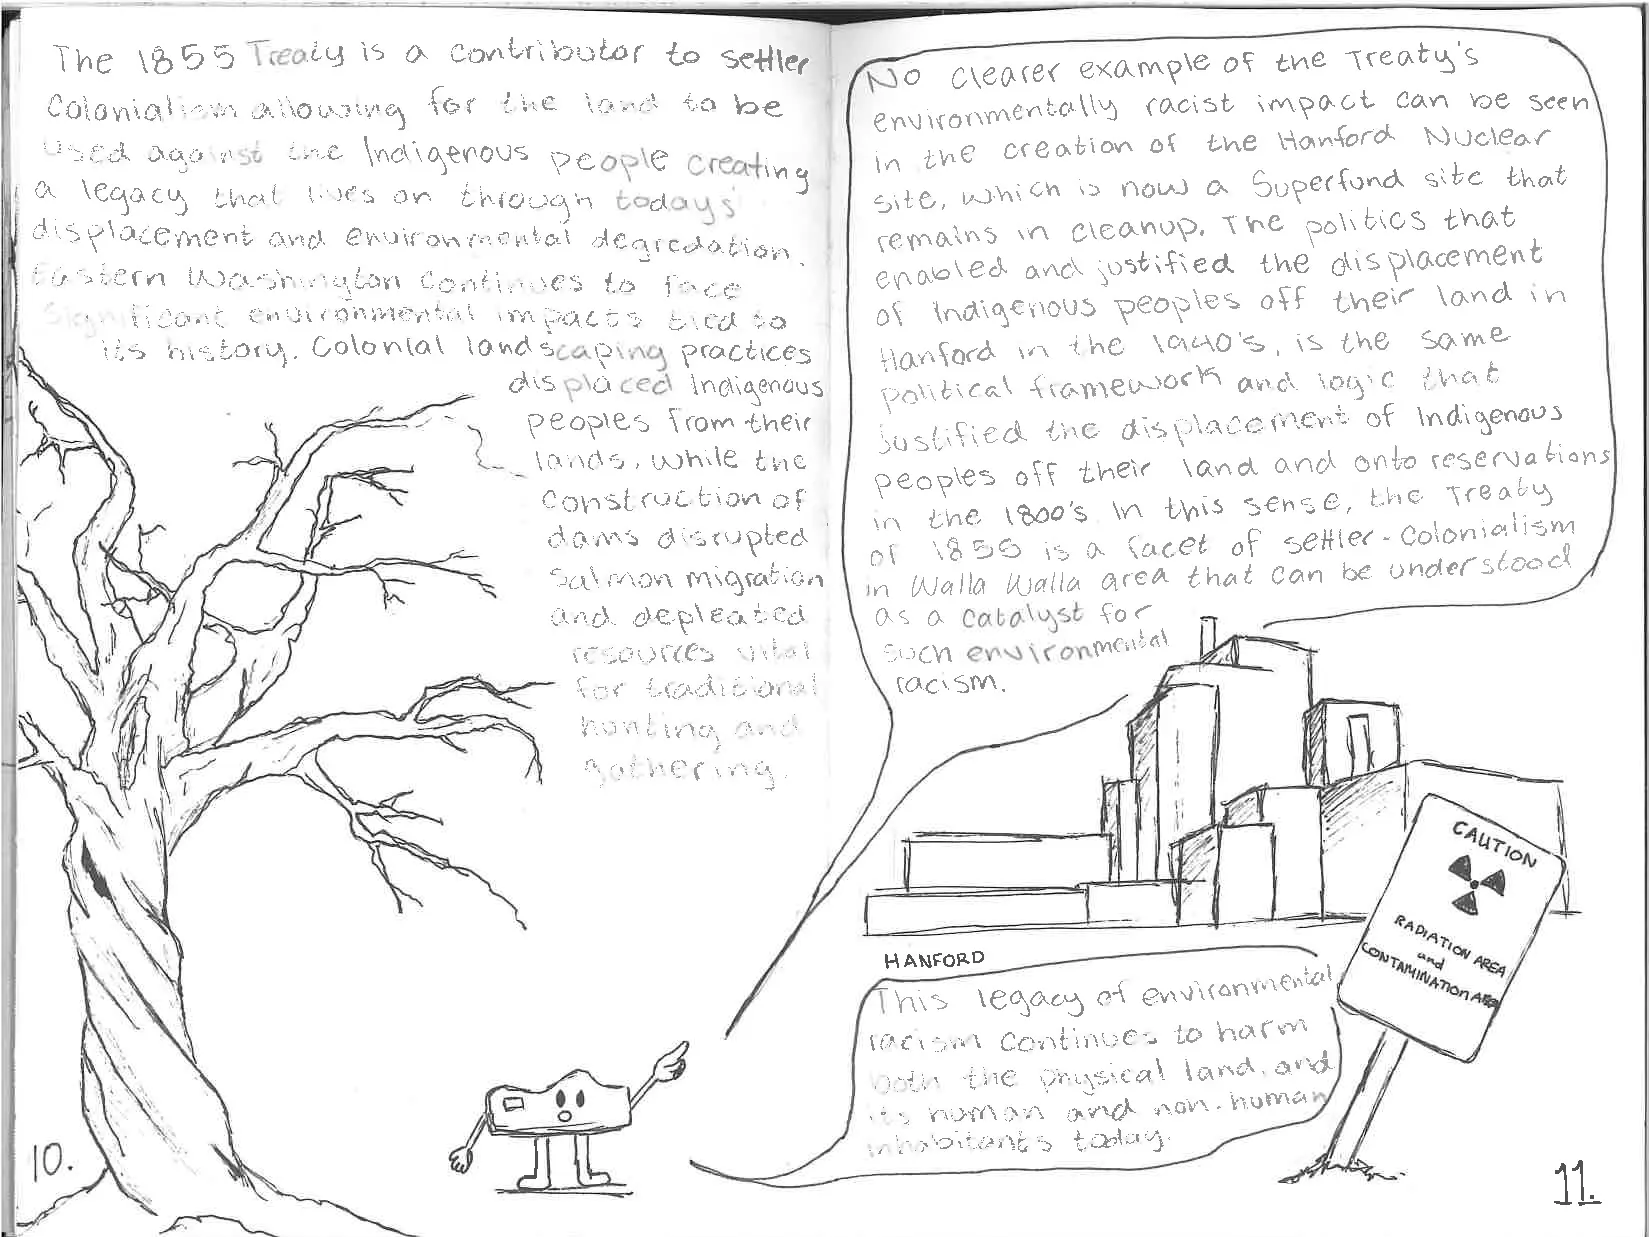 The 1855 Treaty is a contributor to settler
Colonialism allowing for the land to be
used against the Indigenous people creating
a legacy that lives on through todays'
displacement and environmental degredation.
Eastern Washington continues to face
Significant environmental impacts tied to
its history. Colonial landscaping practices
displaced Indigenous
peoples from their
lands, while the
construction of
dams disrupted
salmon migration
and depleated
resources vital
for traditional
hunting and
gathering.
10.
No clearer example of the Treaty's
environmentally racist impact can be seen
in the creation of the Hanford Nuclear
site, which is now a Superfund site that
remains in cleanup. The politics that
enabled and justified the displacement
of Indigenous peoples off their land in
Hanford in the 1940's, is the same
political framework and logic that
justified the displacement of Indigenous
peoples off their land and onto reservations
in the 1800's. In this sense, the Treaty
of 1855 is a facet of settler-colonialism
in Walla Walla area that can be understood
as a catalyst for
such environmental
racism.
CAUTION
RADIATION AREA
and
CONTAMINATION AREA
HANFORD
This legacy of environmental
racism continues to harm
both the physical land, and
its human and non-human
inhabitants today.
11.